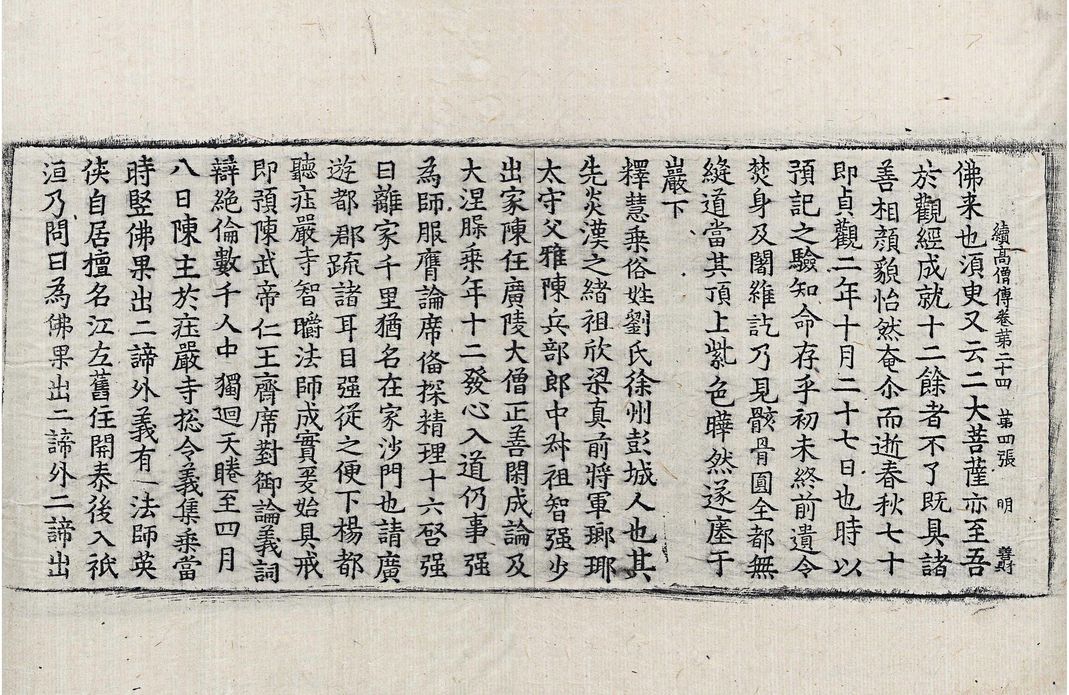 續高僧傳卷第二十四　第四張　明
佛来也須臾又云二大菩薩亦至吾
於觀經成就十二餘者不了既具諸
善相顔貌怡然奄尒而逝春秋七十
即貞觀二年十月二十七日也時以
預記之驗知命存乎初未終前遺令
焚身及闍維訖乃見骸骨圓全都無
縫道當其頂上紫色曄然遂塵于
巖下
釋慧乗俗姓劉氏徐州彭城人也其
先炎漢之緒祖欣梁真前將軍瑯瑘
太守父雅陳兵部郎中叔祖智强少
出家陳任廣陵大僧正善閑成論及
大涅槃乗年十二發心入道仍事强
為師服膺論席俻探精理十六啓强
曰離家千里猶名在家沙門也請廣
遊都郡疏諸耳目强從之便下楊都
聽莊嚴寺智㬭法師成實爰始具戒
即預陳武帝仁王齋席對御論義詞
辯絶倫數千人中獨迴天睠至四月
八日陳主於莊嚴寺捴令義集乗當
時竪佛果出二諦外義有一法師英
俠自居擅名江左舊住開泰後入祇
洹乃問曰為佛果出二諦外二諦出